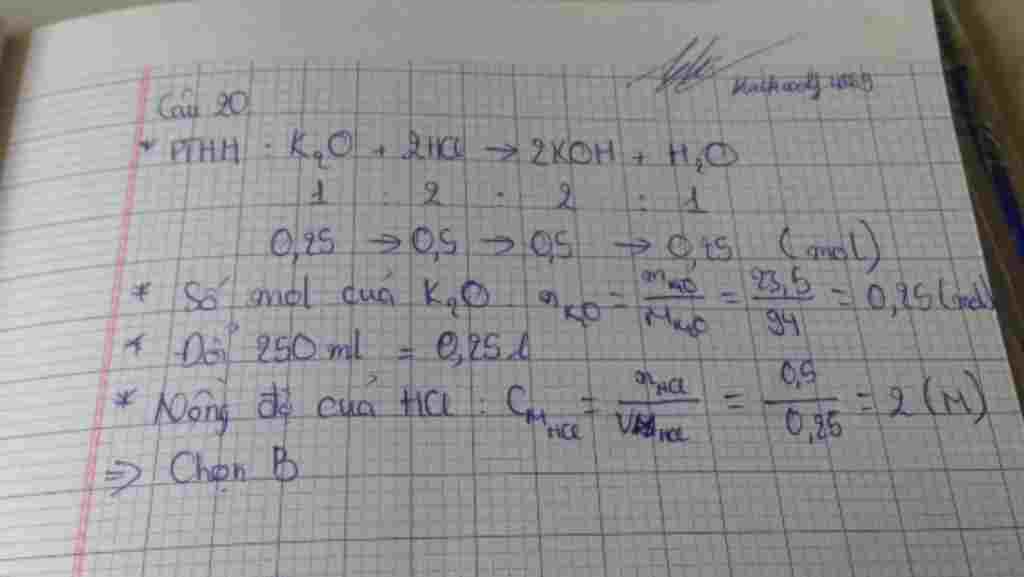 Câu 20
* PTHH : K₂O + 2HCl → 2KOH + H₂O
1 : 2 : 2 : 1
0,25 → 0,5 → 0,5 → 0,25 (mol)
* Số mol của K₂O n_K₂O = m_K₂O / M_K₂O = 23,5 / 94 = 0,25 (mol)
* Đổi 250 ml = 0,25 l
* Nồng độ của HCl : C_M_HCl = n_HCl / V_HCl = 0,5 / 0,25 = 2 (M)
⇒ Chọn B